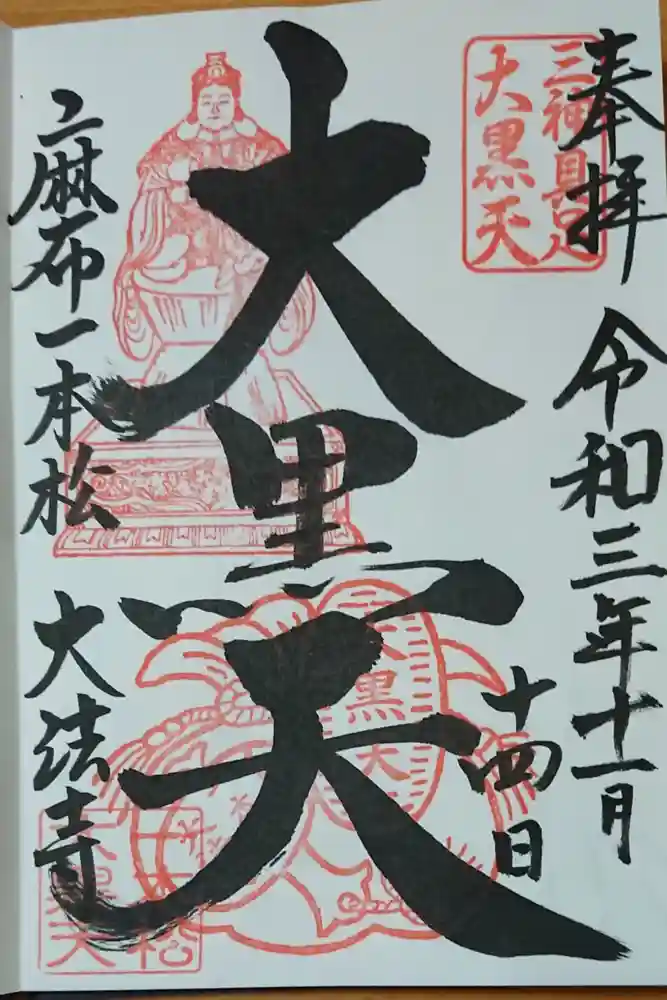 奉拝
令和三年十一月
十四日
三神具足
大黒天
大黒天
大黒天
麻布一本松
大法寺
一本松
大黒天